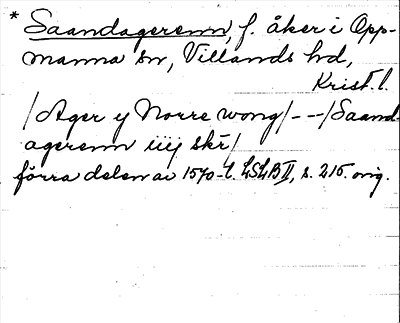 * Saandagerenn, f. åker i Opp-
manna sn, Villands hd,
Krist. l.
/Ager y Norre wong/--/Saand-
agerenn iiij skr/
förra delen av 1570-t. LSLB II, s. 215. orig.